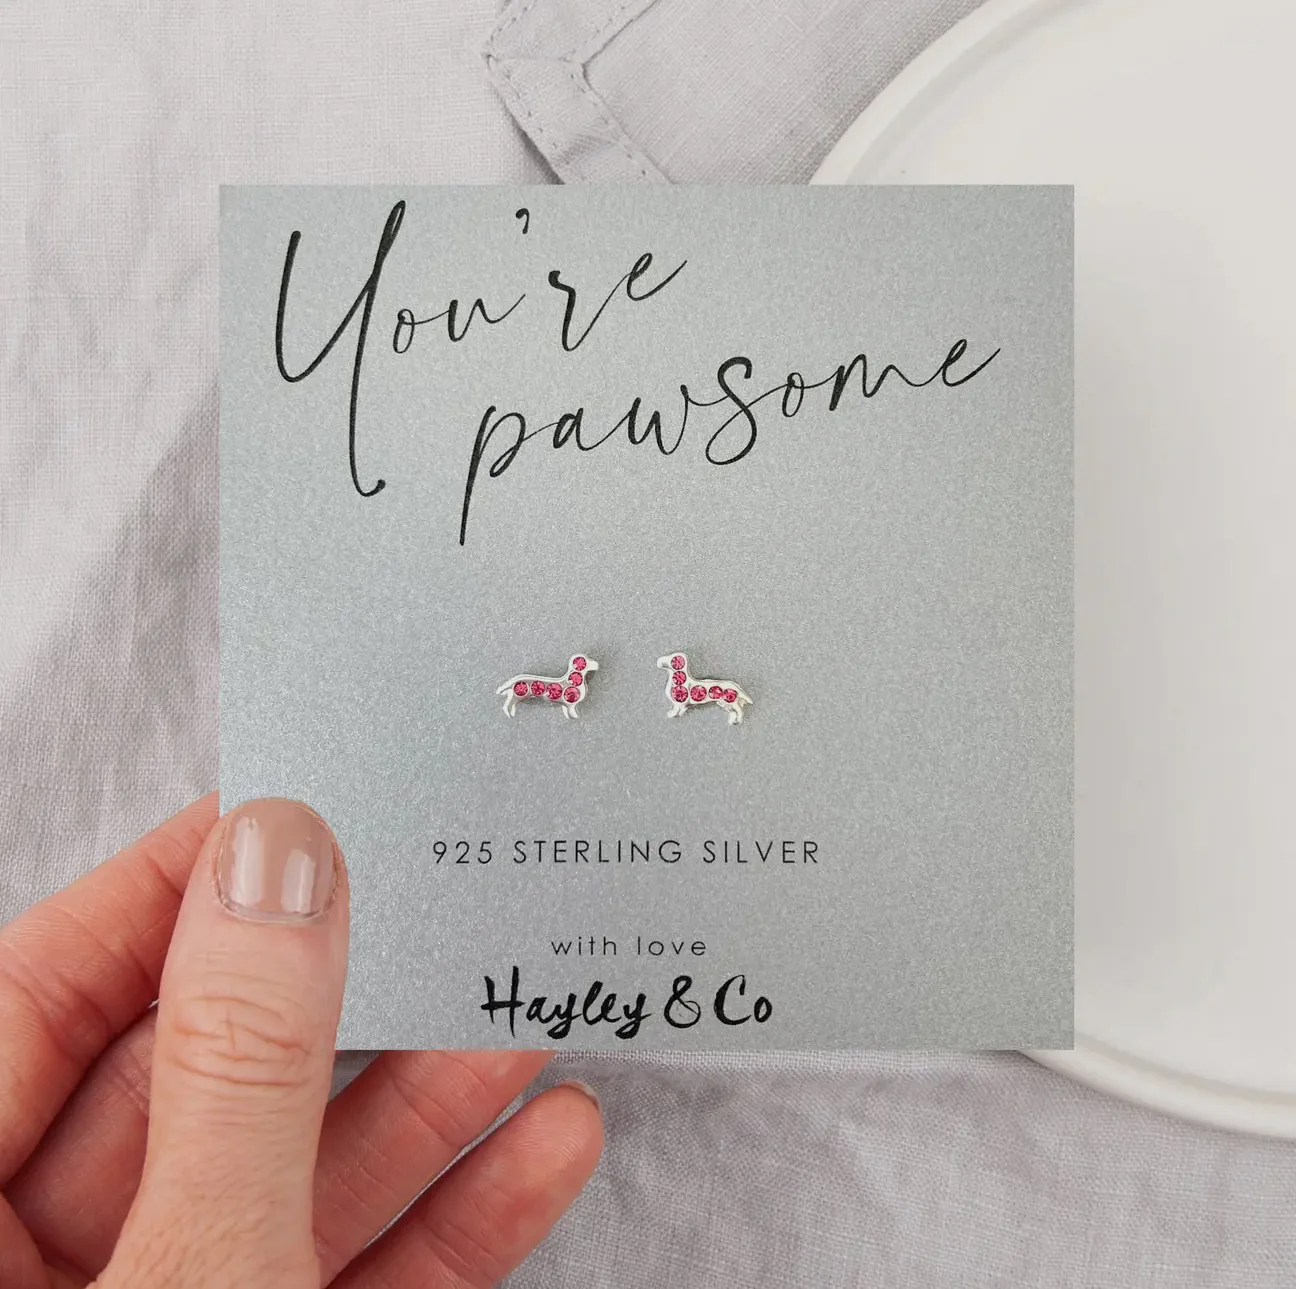 You're
pawsome
925 STERLING SILVER
with love
Hayley & Co